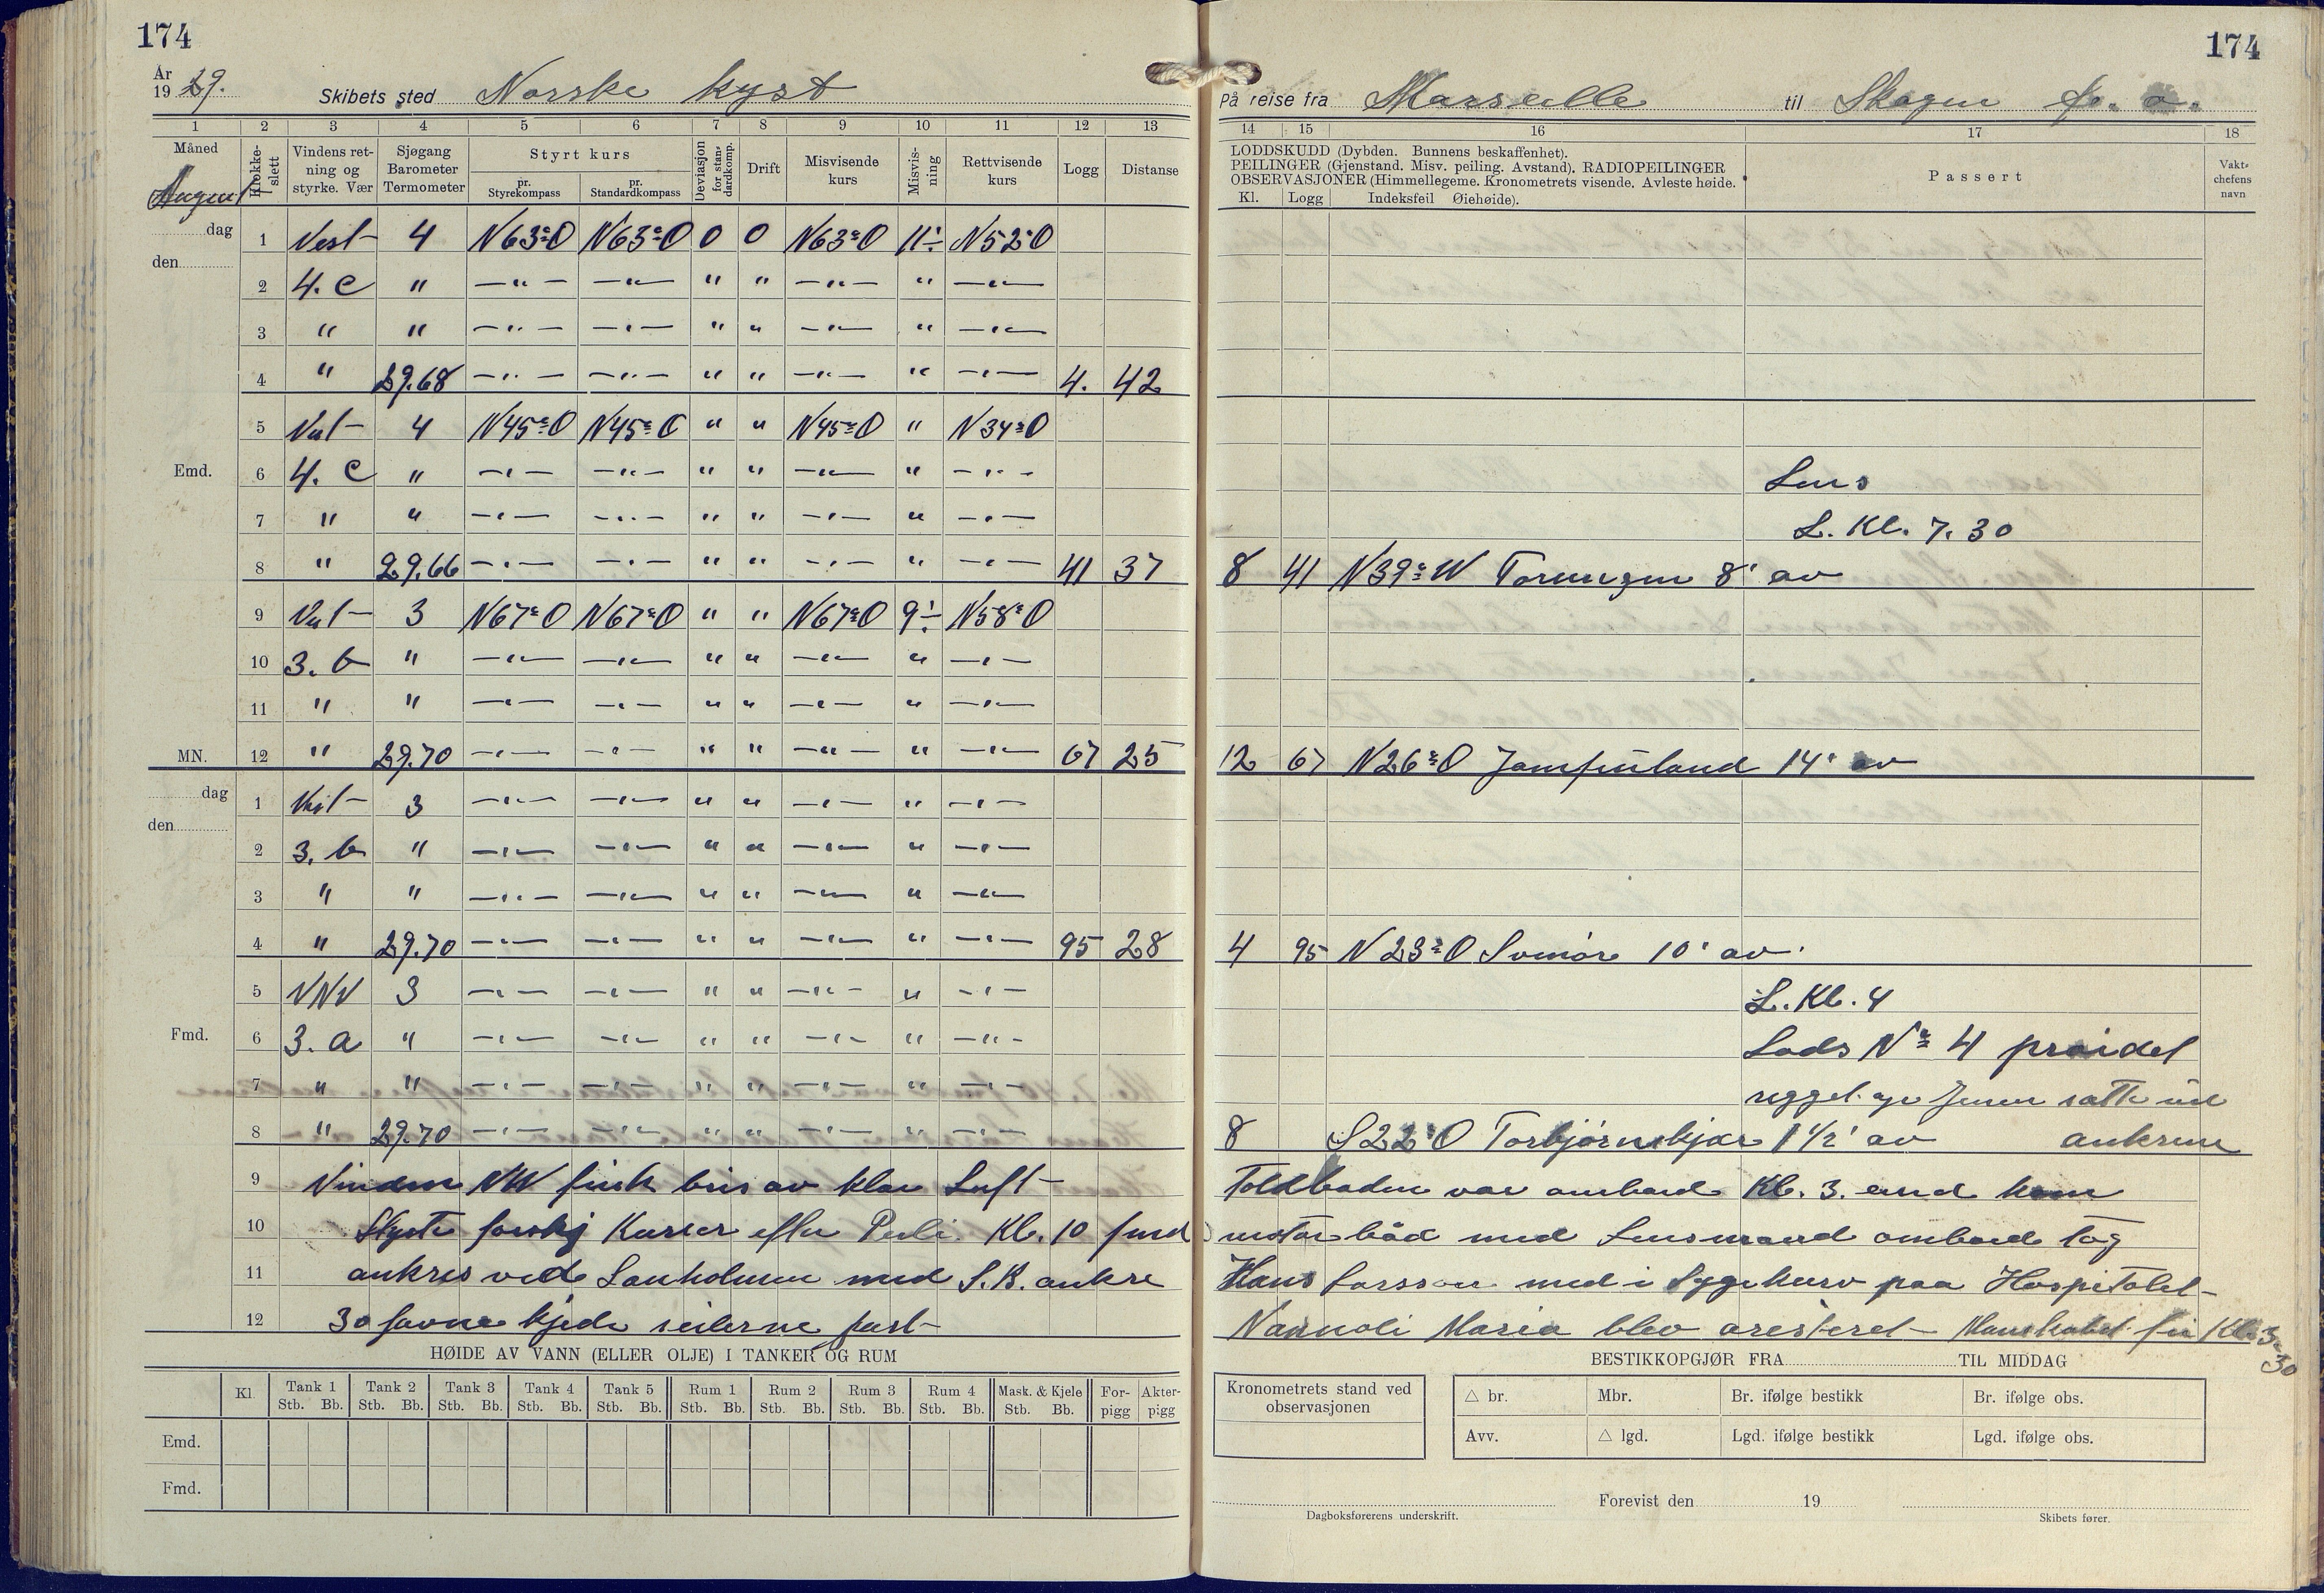 174
År
1929.
Skibets sted Norske kyst
1 2 3 4 5 6 7 8 9 10 11 12 13
Måned
August
Klokke-slett
Vindens retning og styrke. Vær
Sjøgang Barometer Termometer
Styrt kurs
pr. Styrekompass
pr. Standardkompass
Deviasjon for standardkomp.
Drift
Misvisende kurs
Misvisning
Rettvisende kurs
Logg
Distanse
dag
den
1 Vest 4 N63°O N63°O 0 0 N63°O 11÷ N52°O
2 4. c " —"— —"— " " —"— " —"—
3 " " —"— —"— " " —"— " —"—
4 " 29.68 —"— —"— " " —"— " —"— 4. 42
5 Vest 4 N45°O N45°O " " N45°O " N34°O
Emd.
6 4. c " —"— —"— " " —"— " —"—
7 " " —"— —"— " " —"— " —"—
8 " 29.66 —"— —"— " " —"— " —"— 41 37
9 Vest 3 N67°O N67°O " " N67°O 9÷ N58°O
10 3. b " —"— —"— " " —"— " —"—
11 " " —"— —"— " " —"— " —"—
MN. 12 " 29.70 —"— —"— " " —"— " —"— 67 25
dag
den
1 Vest 3 —"— —"— " " —"— " —"—
2 3. b " —"— —"— " " —"— " —"—
3 " " —"— —"— " " —"— " —"—
4 " 29.70 —"— —"— " " —"— " —"— 95 28
5 VNV 3 —"— —"— " " —"— " —"—
Fmd.
6 3. a " —"— —"— " " —"— " —"—
7 " " —"— —"— " " —"— " —"—
8 " 29.70 —"— —"— " " —"— " —"—
9 Vinden NW frisk bris av klar Luft
10 Styrte forskj Kurser efter Peili. Kl. 10 fmd
11 ankres vede Lauholmen med S.B. ankre
12 30 favne kjede seilerne fast
HØIDE AV VANN (ELLER OLJE) I TANKER OG RUM
Kl.
Tank 1 Stb. Bb.
Tank 2 Stb. Bb.
Tank 3 Stb. Bb.
Tank 4 Stb. Bb.
Tank 5 Stb. Bb.
Rum 1 Stb. Bb.
Rum 2 Stb. Bb.
Rum 3 Stb. Bb.
Rum 4 Stb. Bb.
Mask. & Kjele Stb. Bb.
For-pigg
Akter-pigg
Emd.
Fmd.
174
På reise fra Marseille til Skagen f. o.
14 15 16 17 18
LODDSKUDD (Dybden. Bunnens beskaffenhet).
PEILINGER (Gjenstand. Misv. peiling. Avstand). RADIOPEILINGER
OBSERVASJONER (Himmellegeme. Kronometrets visende. Avleste høide.
Kl. Logg Indeksfeil Øiehøide).
Passert
Vakt-chefens navn
Lens
L. Kl. 7.30
8 41 N39°W Torungen 8' av
12 67 N26°O Jomfruland 14' av
4 95 N23°O Svenør 10' av
L. Kl. 4
Lods No 4 praidet
8 S22°O Torbjørnskjær 1 1/2' av ankrene
Toldboden var ombord Kl. 3. emd kom
båd med Lensmand ombord tog
Hans Larsson med i Sygekurv paa Hospitalet
Maria blev aresteret Manskabet fri Kl. 3.30
BESTIKKOPGJØR FRA TIL MIDDAG
Kronometrets stand ved observasjonen
△ br. Mbr. Br. ifølge bestikk Br. ifølge obs.
Avv. △ lgd. Lgd. ifølge bestikk Lgd. ifølge obs.
Forevist den 19
Dagboksførerens underskrift.
Skibets fører.